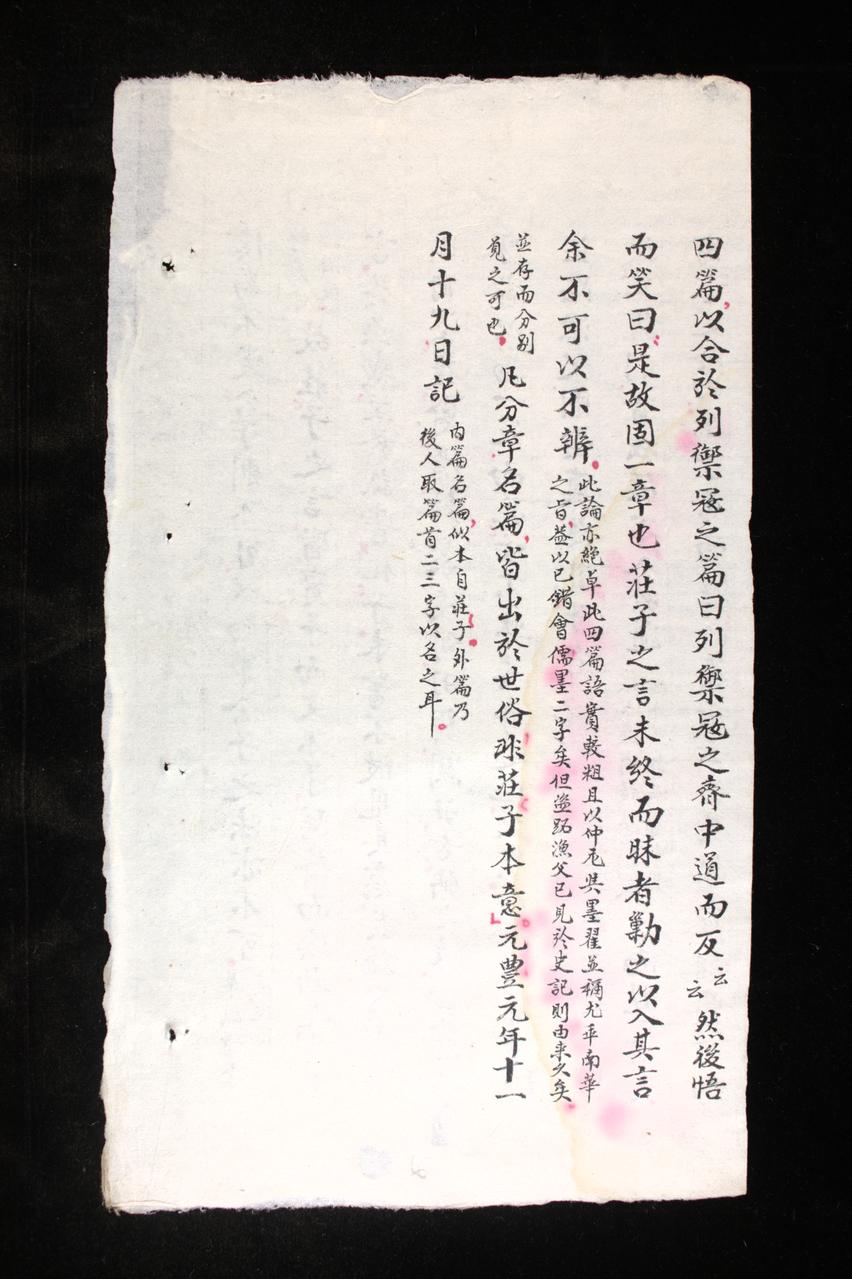 四篇以合於列禦寇之篇曰列禦寇之齊中道而反云云然後悟
而笑曰是故固一章也莊子之言未終而昧者勦之以入其言
余不可以不辨
此論亦絕卓此四篇語實較粗且以仲尼與墨翟並稱尤乖南華
之旨蓋以已錯會儒墨二字矣但盜跖漁父已見於史記則由來久矣
並存而分別
覓之可也
凡分章名篇皆出於世俗非莊子本意元豐元年十一
月十九日記
內篇名篇似本自莊子外篇乃
後人取篇首二三字以名之耳